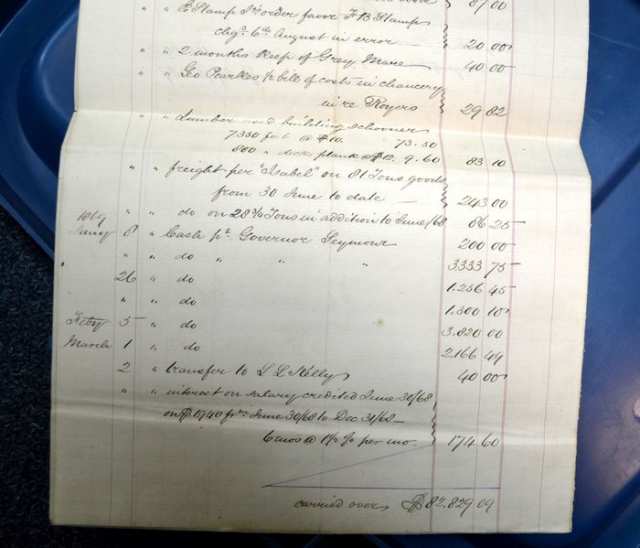 87.00
" " E Stamp Pr order favor F B Stamp
chgd. 6th August in error — 20 00
" " 2 months Keep of Gray Mare 40 00
" " Geo Pearkes pr bill of costs in chancery
in re Royers 29 82
" " Lumber used building schooner
7350 feet @ $10. 73.50
800 " deck plank @ $12. 9.60 83 10
" " freight per "Isabel" on 81 Tons goods
from 30 June to date — 243.00
" " do on 28¾ Tons in addition to June/68 86 25
1869
Jany 8 " Cash pd. Governor Seymour 200 00
" " do " " 3333 75
26 " do 1.256 45
" " do 1.300 10
Feby 5 " do 3.820 00
March 1 " do 2166 44
2 " transfer to L L Kelly 40 00
" " interest on salary credited June 30/68
on $ 9740 fr. June 30/68 to Dec 31/68 —
6 mos @ 1½ % per mo. 174.60
carried over $82.829.09